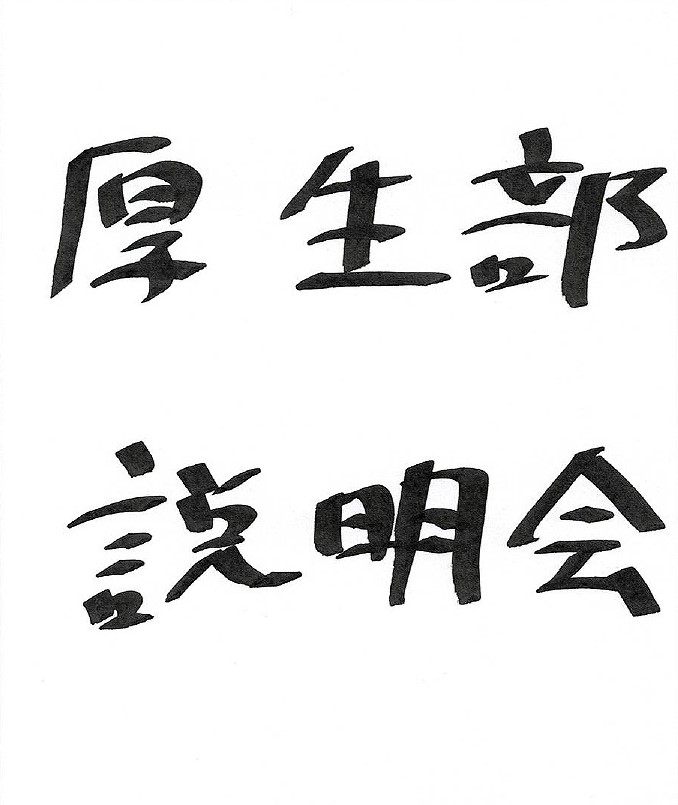 厚生部
説明会